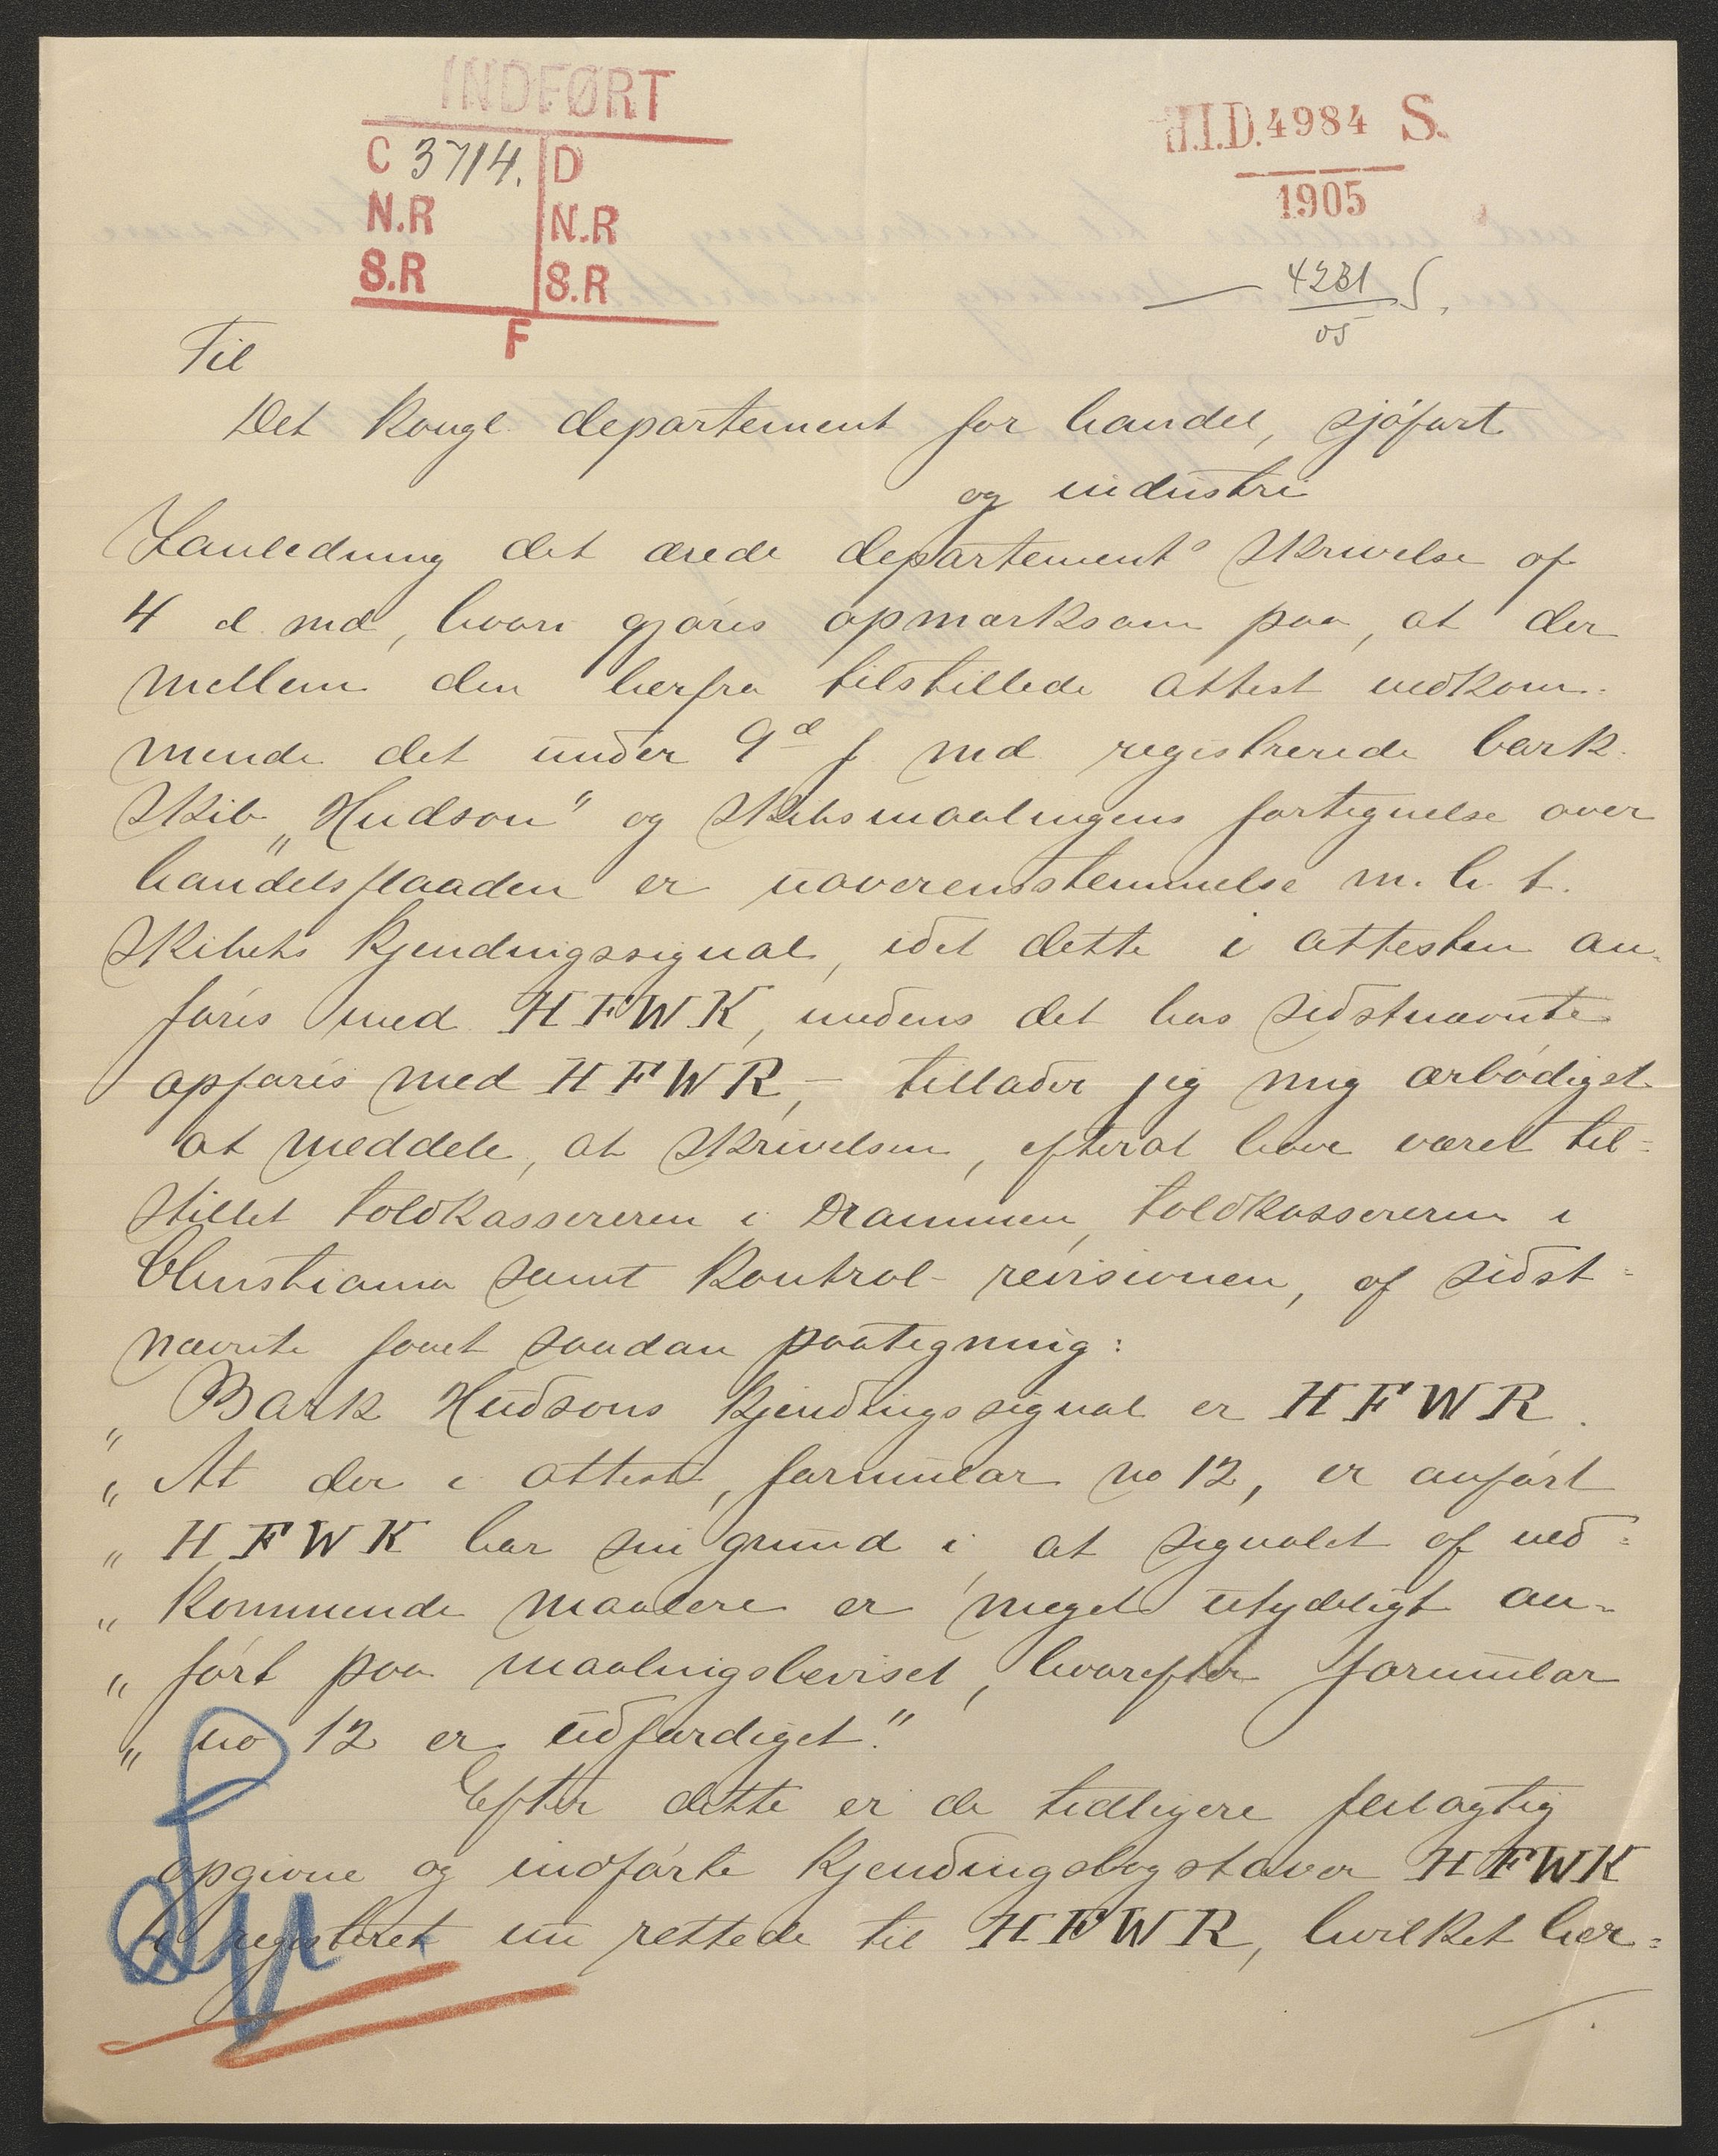 INDFØRT
C 3714. D
N.R N.R
S.R S.R
F
H.I.D. 4984 S.
1905
4231 S.
05
Til
Det kongl. departement for handel, sjøfart
og industri
I anledning det ærede departements skrivelse af
4 d. md, hvori gjøres opmærksom paa, at der
mellem den herfra tilstillede attest vedkom-
mende det under 9d f. md registrerede bark-
skib „Hudson" og skibsmaalingens fortegnelse over
handelsflaaden er uoverensstemmelse m. h. t.
skibets kjendingssignal, idet dette i attesten an-
føres med HFWK, medens det hos sidstnævnte
opføres med HFWR, – tillader jeg mig ærbødigst
at meddele, at skrivelsen, efterat have været til=
stillet toldkassereren i Drammen, toldkassereren i
Christiania samt kontrol-revisionen, af sidst=
nævnte faaet saadan paategning:
„ Bark Hudsons kjendingssignal er HFWR.
„ At der i attest, formular no 12, er anført
„ HFWK har sin grund i, at signalet af ved=
„ kommende maalere er meget utydeligt an-
„ ført paa maalingsbeviset, hvorefter formular
„ no 12 er udfærdiget."
Efter dette er de tidligere feilagtig
opgivne og indførte kjendingsbogstaver HFWK
i registeret nu rettede til HFWR, hvilket her=